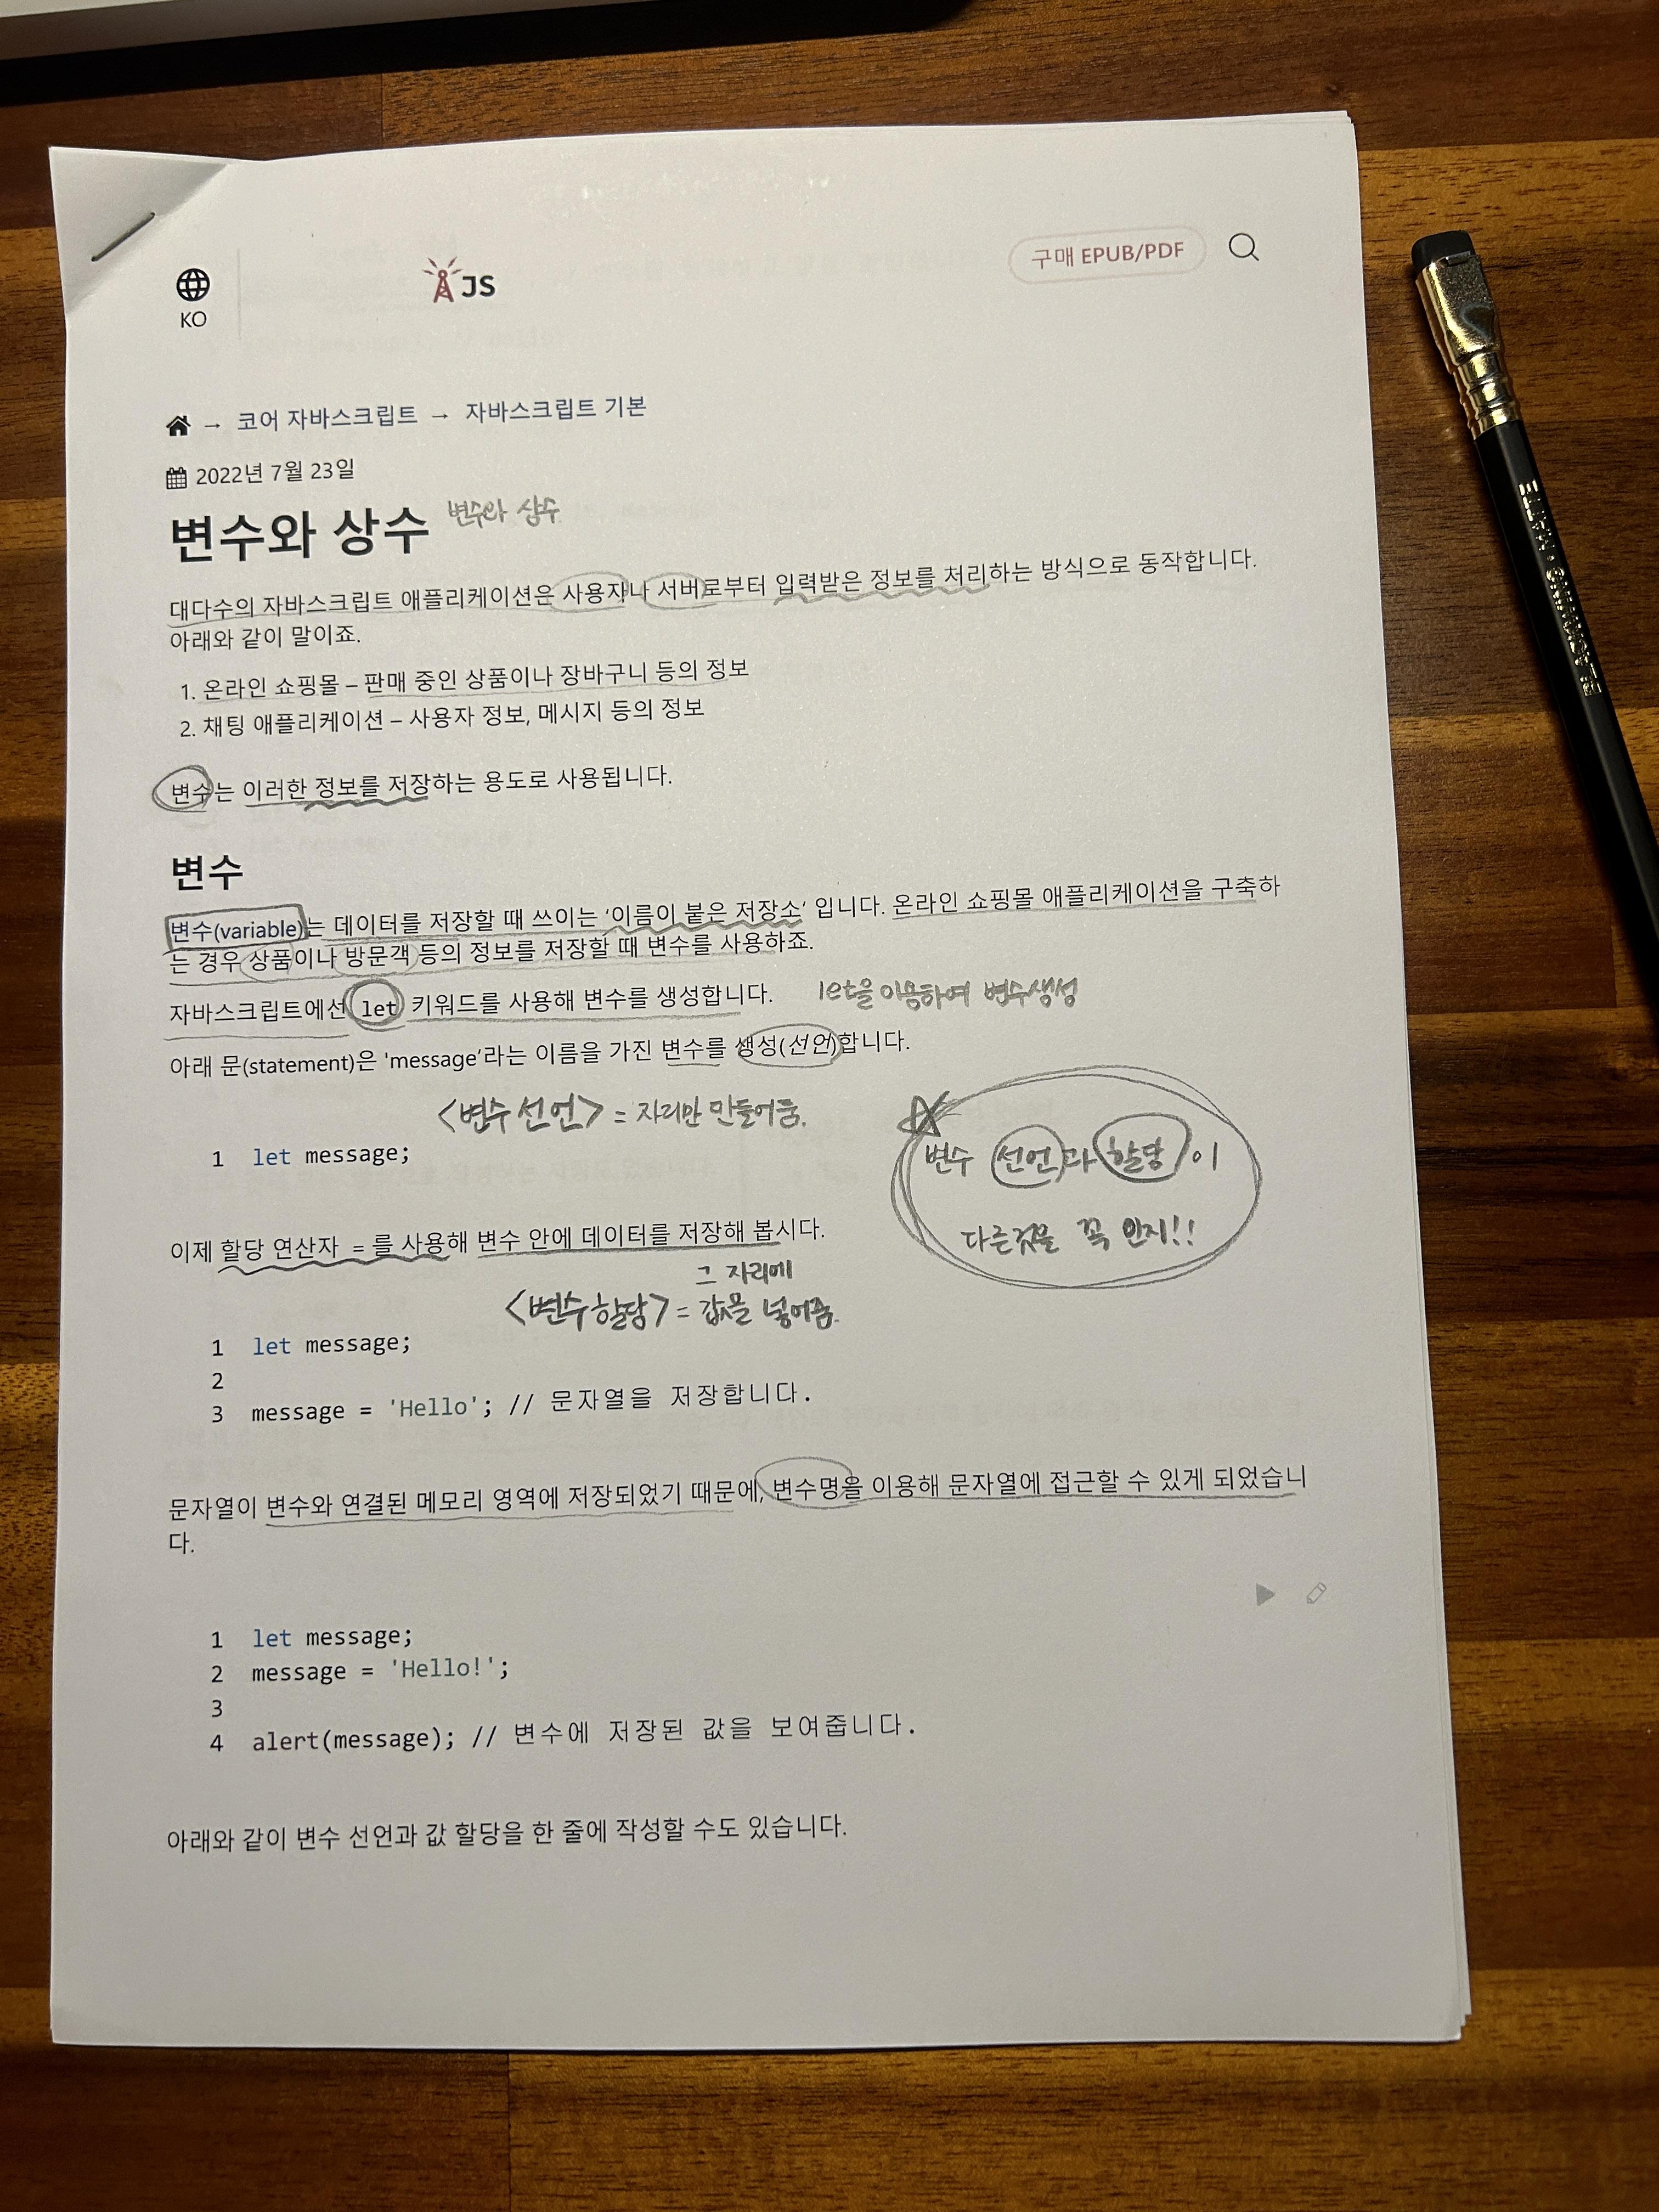 KO
JS
구매 EPUB/PDF
→ 코어 자바스크립트 → 자바스크립트 기본
2022년 7월 23일
변수와 상수 변수와 상수
대다수의 자바스크립트 애플리케이션은 사용자나 서버로부터 입력받은 정보를 처리하는 방식으로 동작합니다.
아래와 같이 말이죠.
1. 온라인 쇼핑몰 – 판매 중인 상품이나 장바구니 등의 정보
2. 채팅 애플리케이션 – 사용자 정보, 메시지 등의 정보
변수는 이러한 정보를 저장하는 용도로 사용됩니다.
변수
변수(variable)는 데이터를 저장할 때 쓰이는 ‘이름이 붙은 저장소’ 입니다. 온라인 쇼핑몰 애플리케이션을 구축하
는 경우 상품이나 방문객 등의 정보를 저장할 때 변수를 사용하죠.
자바스크립트에선 let 키워드를 사용해 변수를 생성합니다. let을 이용하여 변수생성
아래 문(statement)은 'message'라는 이름을 가진 변수를 생성(선언)합니다.
<변수 선언> = 자리만 만들어줌.
1 let message;
변수 선언과 할당이
다른것을 꼭 인지!!
이제 할당 연산자 = 를 사용해 변수 안에 데이터를 저장해 봅시다.
그 자리에
<변수할당> = 값을 넣어줌.
1 let message;
2
3 message = 'Hello'; // 문자열을 저장합니다.
문자열이 변수와 연결된 메모리 영역에 저장되었기 때문에, 변수명을 이용해 문자열에 접근할 수 있게 되었습니
다.
1 let message;
2 message = 'Hello!';
3
4 alert(message); // 변수에 저장된 값을 보여줍니다.
아래와 같이 변수 선언과 값 할당을 한 줄에 작성할 수도 있습니다.